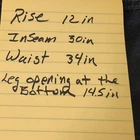 Rise 12in
Inseam 30in
Waist 34in
Leg opening at the
Bottom 14.5in